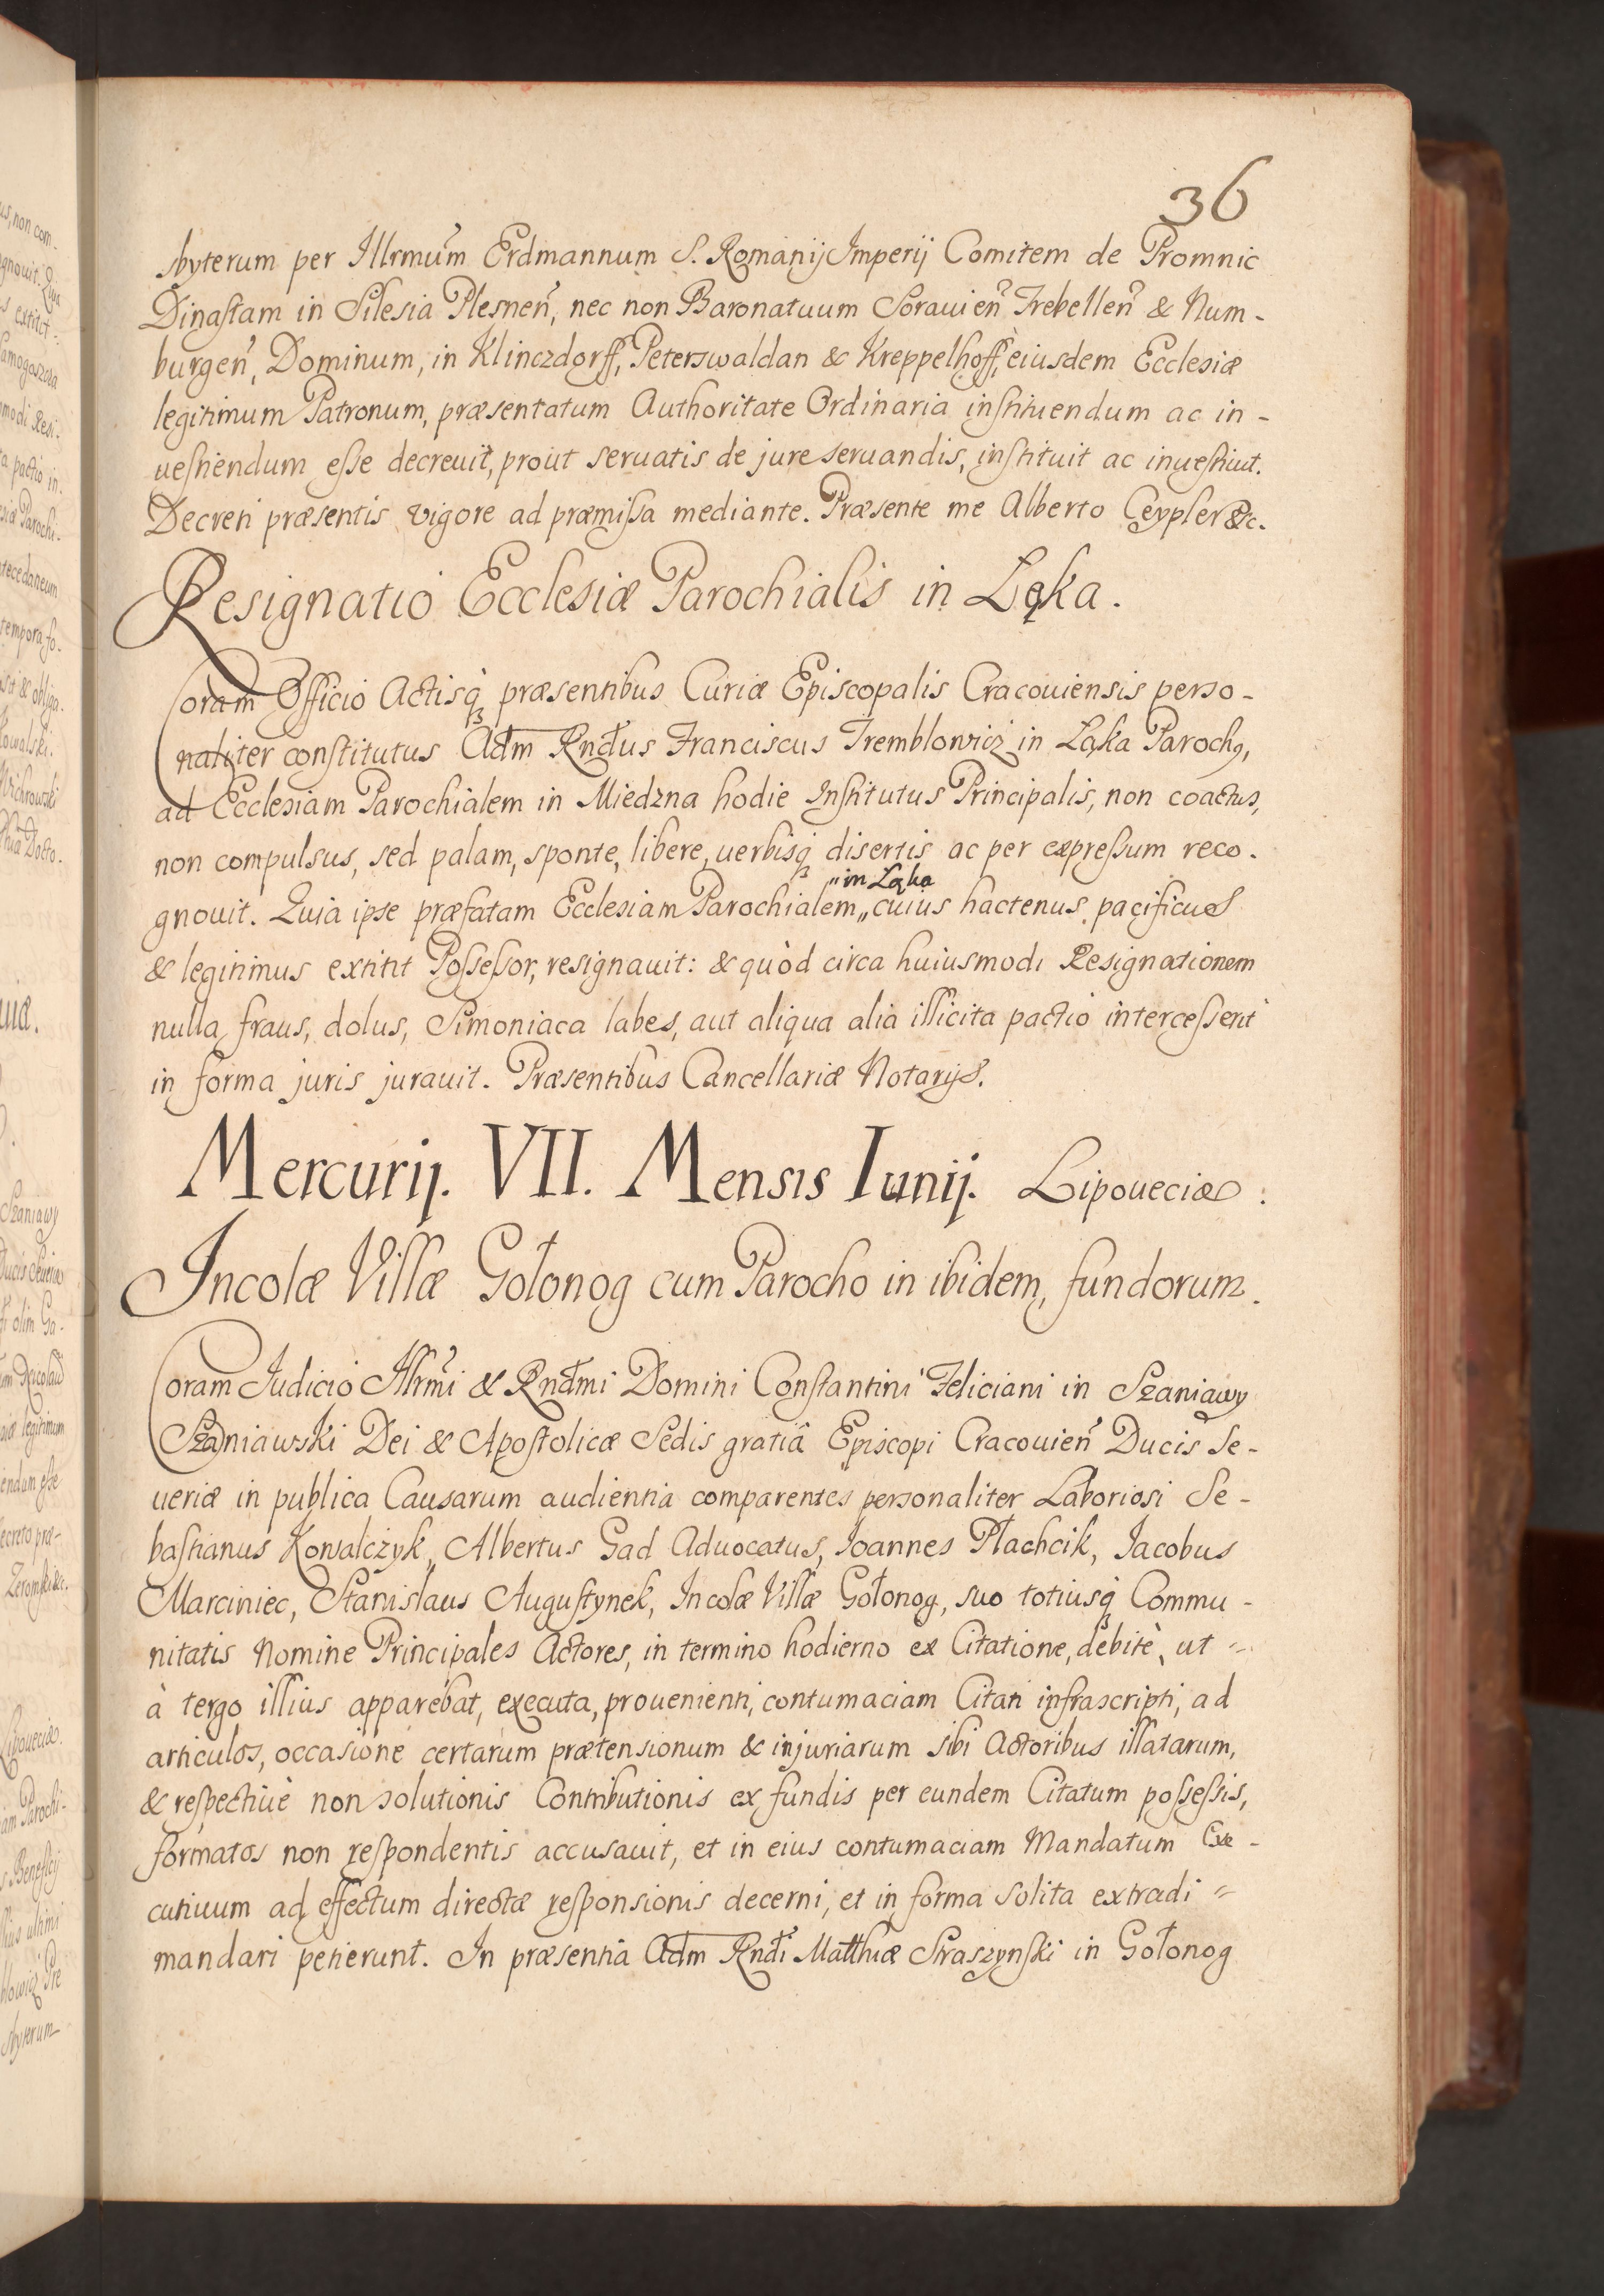 36
sbyterum per Illrmum̃ Erdmannum S. Romanij Imperij Comitem de Promnic
Dinastam in Silesia Plesneñ, nec non Baronatuum Sorauieñ Trebelleñ & Num-
burgeñ, Dominum, in Klinczdorff, Peterswaldan & Kreppelhoff, eiusdem Ecclesiæ
legitimum Patronum, præsentatum Authoritate Ordinaria instituendum ac in-
uestiendum esse decreuit, prout seruatis de jure seruandis, instituit ac inuestiuit.
Decreti præsentis vigore ad præmissa mediante. Præsente me Alberto Ceypler &c.
Resignatio Ecclesiæ Parochialis in Ląka.
Coram Officio Actisq̃ præsentibus Curiæ Episcopalis Cracouiensis perso-
naliter constitutus Adm Rndus Franciscus Tremblowicz in Ląka Paroch9,
ad Ecclesiam Parochialem in Miedzna hodie Institutus Principalis, non coactus,
non compulsus, sed palam, sponte, libere, uerbisq̃ disertis ac per expressum reco-
„in Ląka
gnouit. Quia ipse præfatam Ecclesiam Parochialem „ cuius hactenus pacificus
& legitimus extitit Possessor, resignauit: & quòd circa huiusmodi Resignationem
nulla fraus, dolus, Simoniaca labes, aut aliqua alia illicita pactio intercesserit
in forma juris jurauit. Præsentibus Cancellariæ Notarijs.
Mercurij. VII. Mensis Iunij. Lipoueciæ.
Incolæ Villæ Gołonog cum Parocho in ibidem, fundorum.
Coram Judicio Illrm̃i & Rndmi Domini Constantini Feliciani in Szaniawy
Szaniawski Dei & Apostolicæ Sedis gratiâ Episcopi Cracouieñ Ducis Se-
ueriæ in publica Causarum audientia comparentes personaliter Laboriosi Se-
bastianus Kowalczyk, Albertus Gad Aduocatus, Joannes Płachcik, Jacobus
Marciniec, Stanislaus Augustynek, Incolæ Villæ Gołonog, suo totiusq̃ Commu-
nitatis Nomine Principales Actores, in termino hodierno ex Citatione, debitè, ut
à tergo illius apparebat, executa, prouenienti, contumaciam Citati infrascripti, ad
articulos, occasione certarum prætensionum & injuriarum sibi Actoribus illatarum,
& respectiuè non solutionis Contributionis ex fundis per eundem Citatum possessis,
formatos non respondentis accusauit, et in eius contumaciam Mandatum Exe-
cutiuum ad effectum directæ responsionis decerni, et in forma solita extradi
mandari petierunt. In præsentia Adm Rndi Matthiæ Straszynski in Gołonog